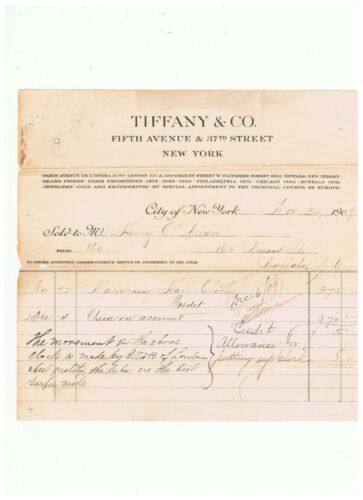 TIFFANY & CO.
FIFTH AVENUE & 37TH STREET
NEW YORK
PARIS AVENUE DE L'OPERA 36BIS LONDON 221 & 221A REGENT STREET W FACTORIES FOREST HILL-NEWARK-NEW JERSEY
GRAND PRIZES PARIS EXPOSITIONS 1878 1889 1900 PHILADELPHIA 1876 CHICAGO 1893 BUFFALO 1901
JEWELERS GOLD AND SILVERSMITHS BY SPECIAL APPOINTMENT TO THE PRINCIPAL COURTS OF EUROPE
City of New York Nov. 30, 1909
Sold to Mr Henry
FOLIO 360 165 Bryant St
TO INSURE ATTENTION CORRESPONDENCE SHOULD BE ADDRESSED TO THE FIRM
Buffalo, N.Y.
Nov 22 Mahogany Hall Clock 375
Credit
Dec 6/09
Dec 4 Check on account 370
Credit 5
The movement in the above
clock is made by Elliott of London
best quality, the tubes are the best
Allowance for
putting up clock 5